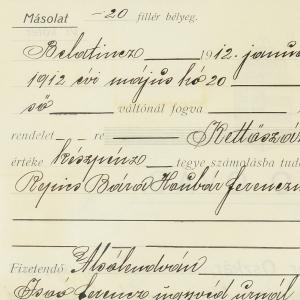 Másolat – 20 fillér bélyeg.
Belatincz 1912. janu
1912 évi május hó 20
sō váltónál fogva
rendelet re Kettőszáz
értéke készpénz tegye számolásba tud
Ferencz
Fizetendő Alsólendván
Ferencz ügyvéd úrnál